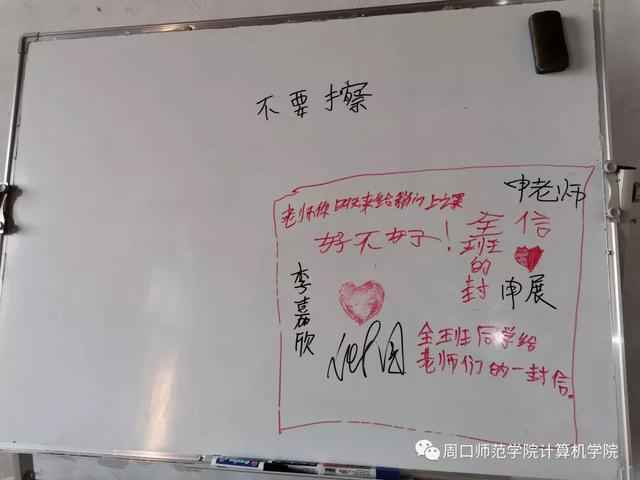 不要擦
申老师
老师你以后来给我们上课
好不好！
全班的封信
李嘉欣
申展
全班同学给
老师们的一封信。
周口师范学院计算机学院